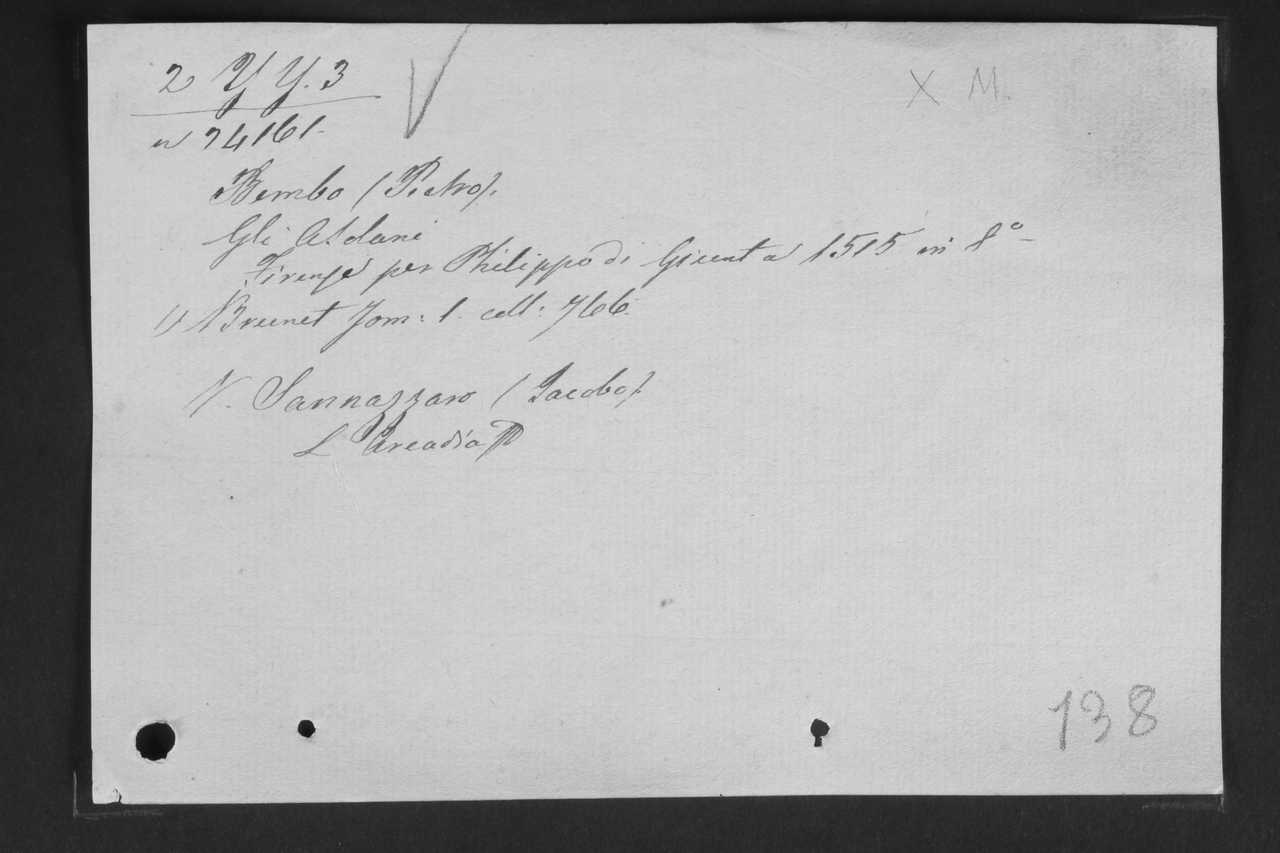 2 Y Y. 3
X M.
n 24161.
Bembo (Pietro).
Gli Asolani
Firenze per Philippo di Giunta 1515 in 8°
V Brunet Tom: 1. coll: 766.
V. Sannazzaro (Jacobo).
L Arcadia
138